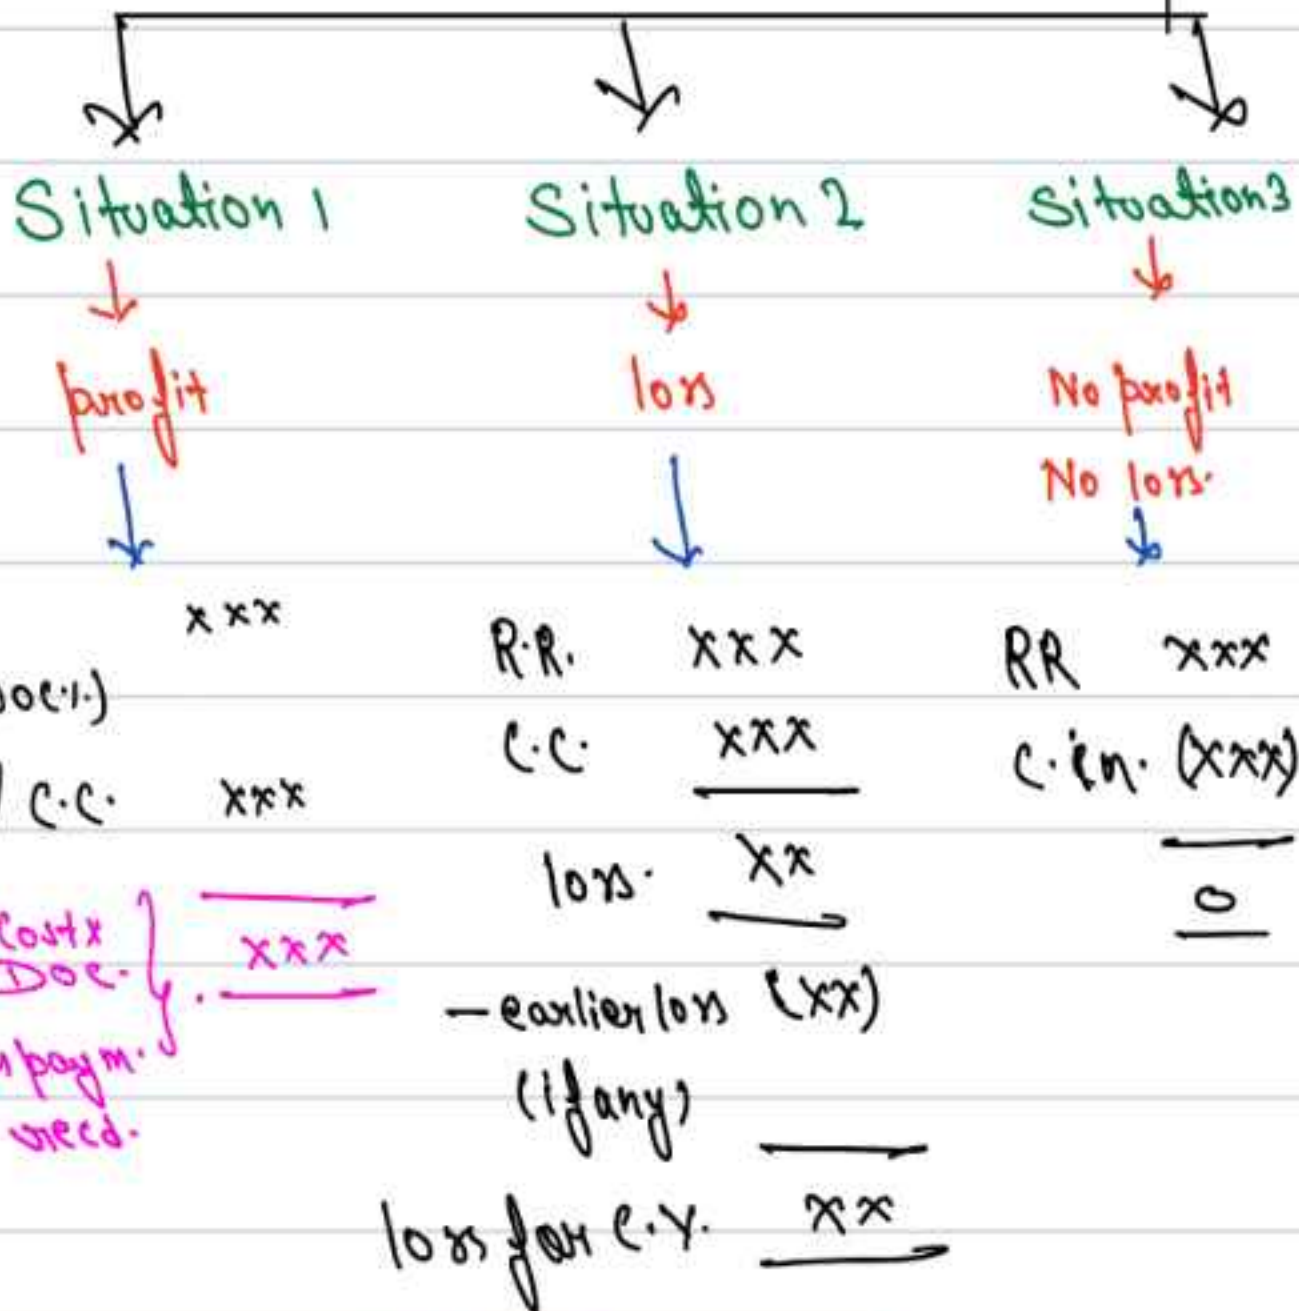 Situation 1
profit
xxx
DOC%)
/ C.C. xxx
Cost x
DOC. xxx
paym.
recd.
Situation 2
loss
R.R. xxx
C.C. xxx
loss. xx
- earlier loss (xx)
(if any)
loss for C.Y. xx
Situation 3
No profit
No loss.
RR xxx
C. in. (xxx)
0